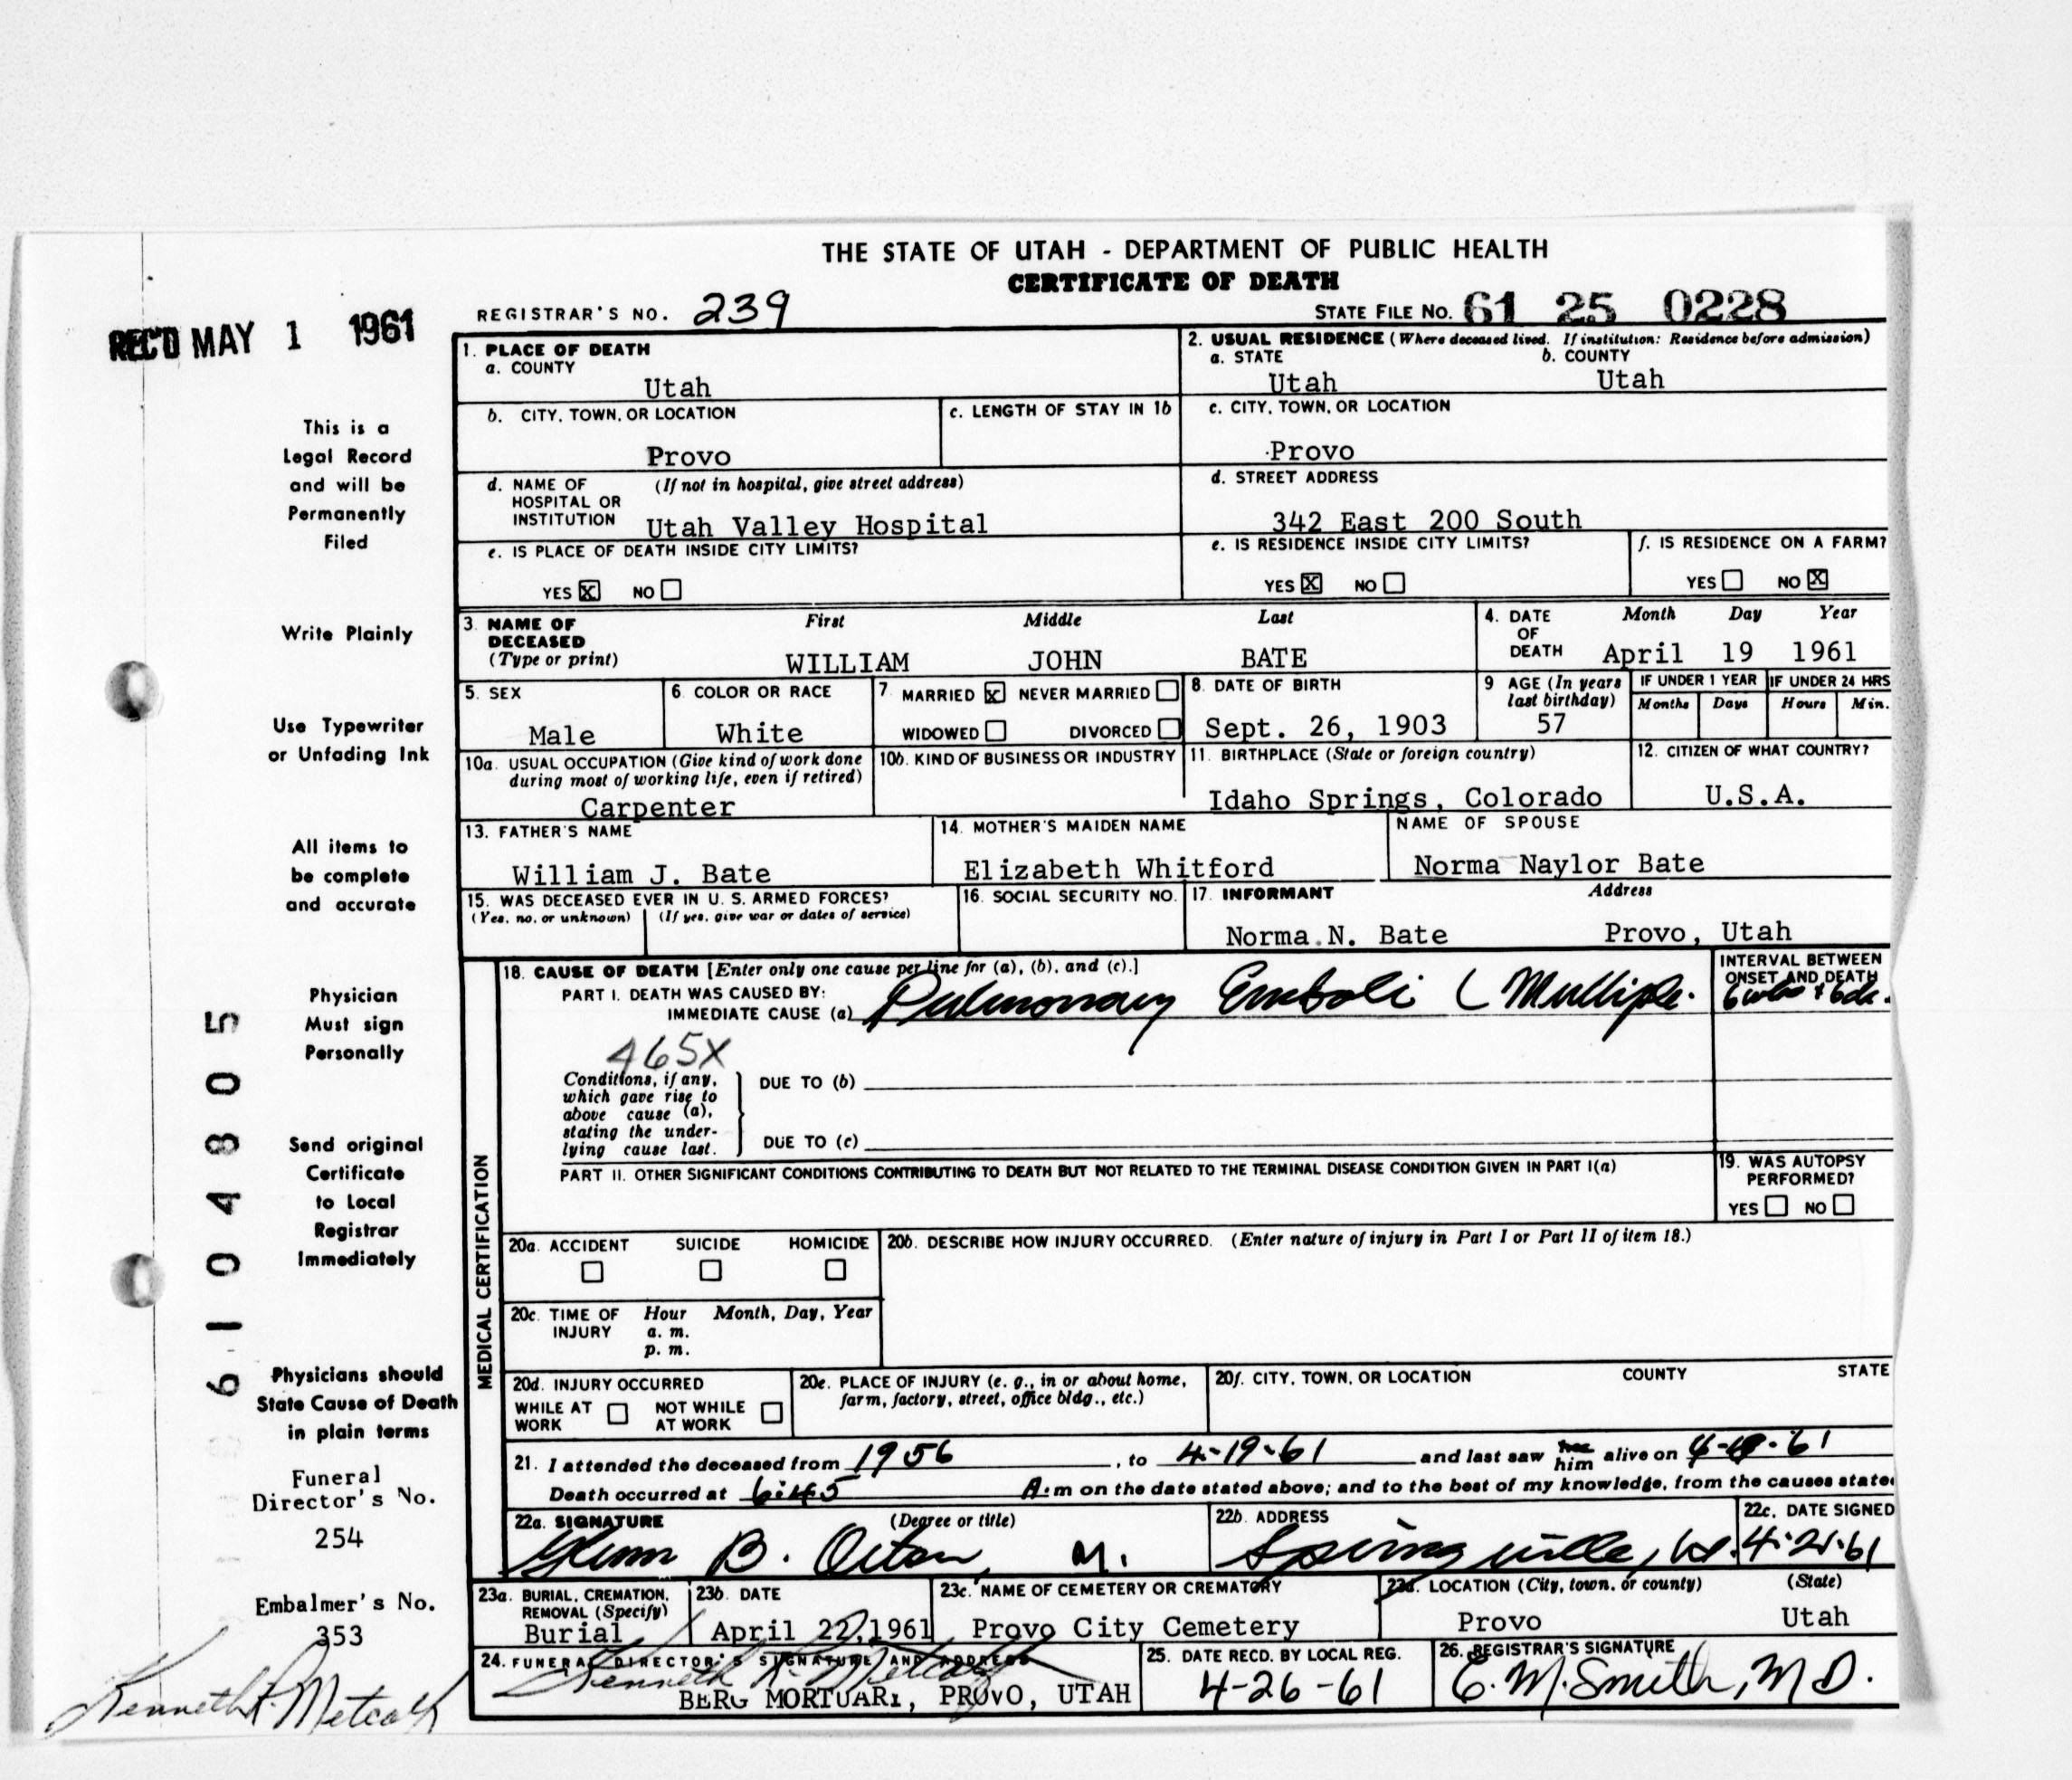 THE STATE OF UTAH - DEPARTMENT OF PUBLIC HEALTH
CERTIFICATE OF DEATH
REGISTRAR'S NO. 239
STATE FILE NO. 61 25 0228
REC'D MAY 1 1961
1. PLACE OF DEATH
a. COUNTY
Utah
2. USUAL RESIDENCE (Where deceased lived. If institution: Residence before admission)
a. STATE b. COUNTY
Utah Utah
b. CITY, TOWN, OR LOCATION
Provo
c. LENGTH OF STAY IN 1b
c. CITY, TOWN, OR LOCATION
Provo
d. NAME OF HOSPITAL OR INSTITUTION (If not in hospital, give street address)
Utah Valley Hospital
d. STREET ADDRESS
342 East 200 South
e. IS PLACE OF DEATH INSIDE CITY LIMITS?
YES X NO
e. IS RESIDENCE INSIDE CITY LIMITS?
YES X NO
f. IS RESIDENCE ON A FARM?
YES NO X
3. NAME OF DECEASED (Type or print)
First Middle Last
WILLIAM JOHN BATE
4. DATE OF DEATH
Month Day Year
April 19 1961
5. SEX
Male
6. COLOR OR RACE
White
7. MARRIED X NEVER MARRIED
WIDOWED DIVORCED
8. DATE OF BIRTH
Sept. 26, 1903
9 AGE (In years last birthday)
57
IF UNDER 1 YEAR
Months Days
IF UNDER 24 HRS
Hours Min.
10a. USUAL OCCUPATION (Give kind of work done during most of working life, even if retired)
Carpenter
10b. KIND OF BUSINESS OR INDUSTRY
11. BIRTHPLACE (State or foreign country)
Idaho Springs, Colorado
12. CITIZEN OF WHAT COUNTRY?
U.S.A.
13. FATHER'S NAME
William J. Bate
14. MOTHER'S MAIDEN NAME
Elizabeth Whitford
NAME OF SPOUSE
Norma Naylor Bate
15. WAS DECEASED EVER IN U. S. ARMED FORCES?
(Yes, no, or unknown) (If yes, give war or dates of service)
16. SOCIAL SECURITY NO.
17. INFORMANT Address
Norma N. Bate Provo, Utah
MEDICAL CERTIFICATION
18. CAUSE OF DEATH [Enter only one cause per line for (a), (b), and (c).]
PART I. DEATH WAS CAUSED BY:
IMMEDIATE CAUSE (a) Pulmonary Emboli (Multiple.
INTERVAL BETWEEN ONSET AND DEATH
465X
Conditions, if any, which gave rise to above cause (a), stating the underlying cause last.
DUE TO (b)
DUE TO (c)
PART II. OTHER SIGNIFICANT CONDITIONS CONTRIBUTING TO DEATH BUT NOT RELATED TO THE TERMINAL DISEASE CONDITION GIVEN IN PART I(a)
19. WAS AUTOPSY PERFORMED?
YES NO
20a. ACCIDENT SUICIDE HOMICIDE
20b. DESCRIBE HOW INJURY OCCURRED. (Enter nature of injury in Part I or Part II of item 18.)
20c. TIME OF INJURY
Hour Month, Day, Year
a. m.
p. m.
20d. INJURY OCCURRED
WHILE AT WORK NOT WHILE AT WORK
20e. PLACE OF INJURY (e. g., in or about home, farm, factory, street, office bldg., etc.)
20f. CITY, TOWN, OR LOCATION COUNTY STATE
21. I attended the deceased from 1956, to 4-19-61 and last saw him alive on
Death occurred at 6:45 A.m on the date stated above; and to the best of my knowledge, from the causes state
22a. SIGNATURE (Degree or title)
Glenn B. Orton, M.
22b. ADDRESS
Springville, U.
22c. DATE SIGNED
4-21-61
23a. BURIAL, CREMATION, REMOVAL (Specify)
Burial
23b. DATE
April 22, 1961
23c. NAME OF CEMETERY OR CREMATORY
Provo City Cemetery
23d. LOCATION (City, town, or county) (State)
Provo Utah
24. FUNERAL DIRECTOR'S SIGNATURE AND ADDRESS
Kenneth R. Metcalf
BERG MORTUARY, PROVO, UTAH
25. DATE RECD. BY LOCAL REG.
4-26-61
26. REGISTRAR'S SIGNATURE
C. M. Smith, M D.
This is a
Legal Record
and will be
Permanently
Filed
Write Plainly
Use Typewriter
or Unfading Ink
All items to
be complete
and accurate
Physician
Must sign
Personally
Send original
Certificate
to Local
Registrar
Immediately
Physicians should
State Cause of Death
in plain terms
Funeral
Director's No.
254
Embalmer's No.
353
Kenneth R. Metcalf
6104805